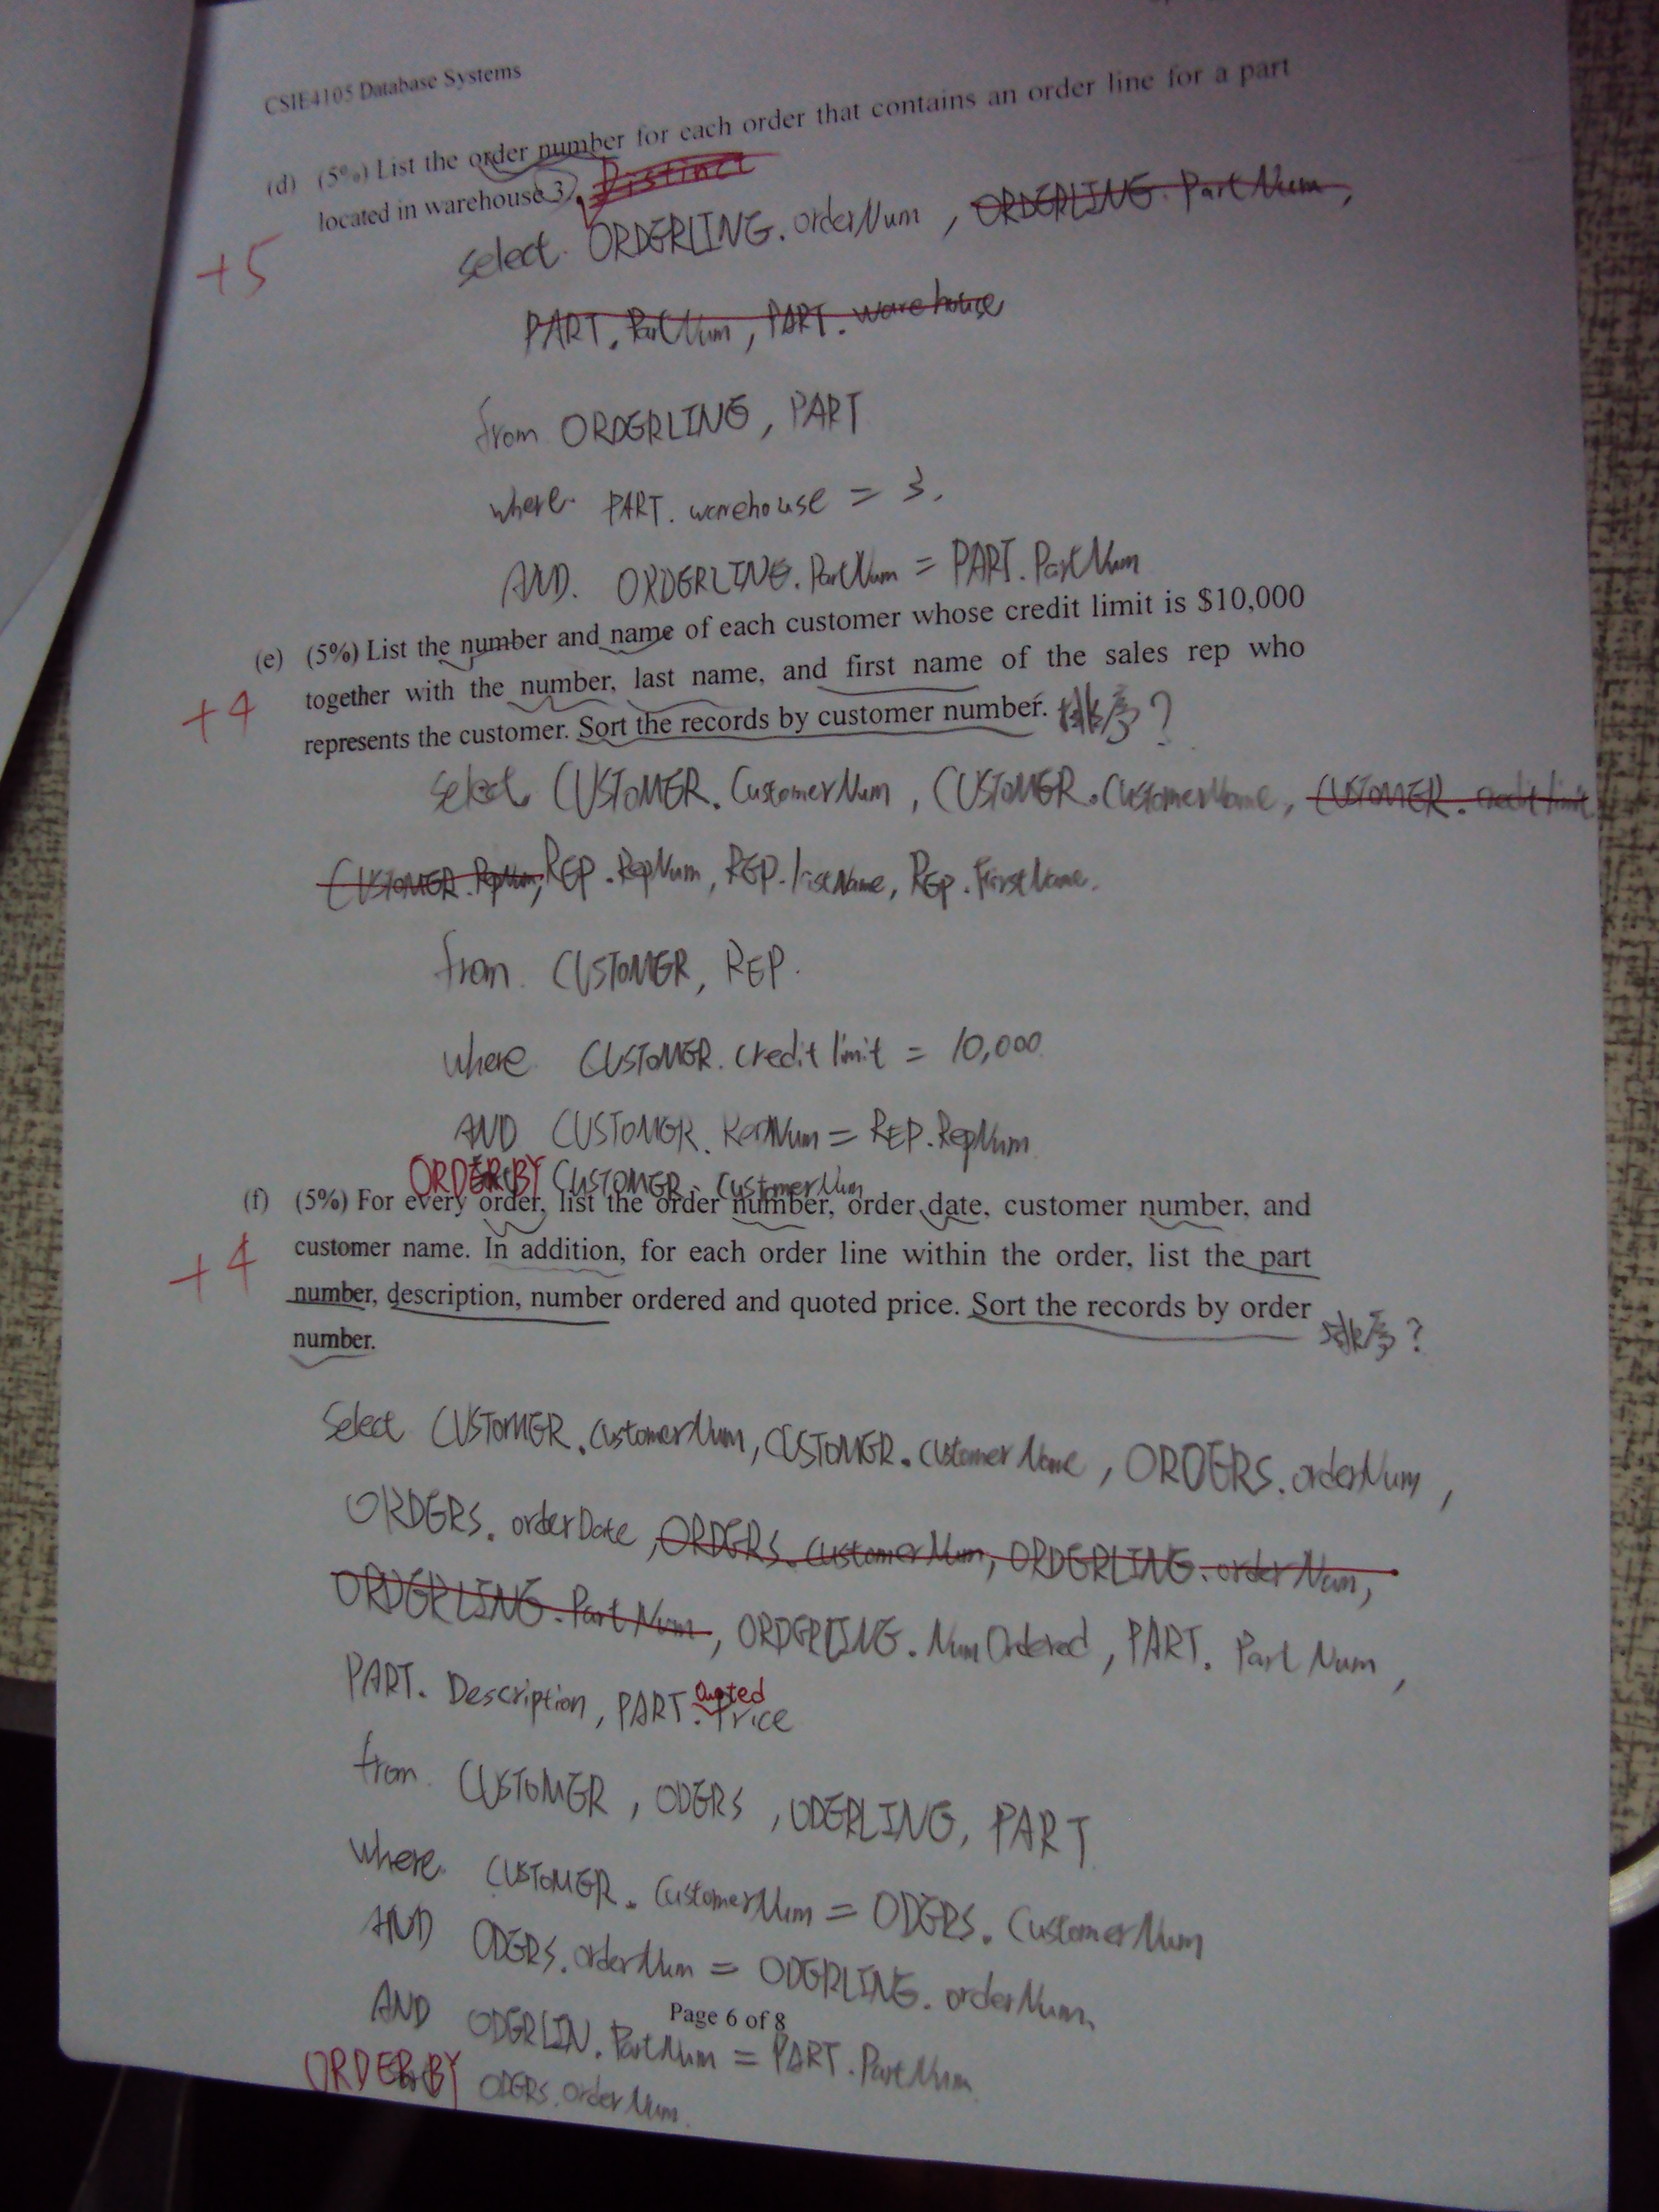 CSIE4105 Database Systems
(d) (5%) List the order number for each order that contains an order line for a part
located in warehouse 3. Distinct
+5
select ORDERLING.orderNum, ORDERLING.PartNum,
PART.PartNum, PART.warehouse
from ORDERLING, PART
where PART.warehouse = 3.
AND. ORDERLING.PartNum = PART.PartNum
(e) (5%) List the number and name of each customer whose credit limit is $10,000
together with the number, last name, and first name of the sales rep who
+4
represents the customer. Sort the records by customer number. ?
select CUSTOMER.CustomerNum, CUSTOMER.CustomerName, CUSTOMER.credit limit
CUSTOMER.RepNum, REP.RepNum, REP.lastName, REP.FirstName.
from. CUSTOMER, REP.
where CUSTOMER.credit limit = 10,000
AND CUSTOMER. = REP.RepNum
ORDER BY CUSTOMER.CustomerNum
(f) (5%) For every order, list the order number, order date, customer number, and
+4
customer name. In addition, for each order line within the order, list the part
number, description, number ordered and quoted price. Sort the records by order
number. ?
Select CUSTOMER.CustomerNum, CUSTOMER.CustomerName, ORDERS.orderNum,
ORDERS.orderDate, ORDERS.CustomerNum, ORDERLING.orderNum,
ORDERLING.PartNum, ORDERLING.NumOrdered, PART.PartNum,
PART.Description, PART.QuotedPrice
from. CUSTOMER, ODERS, ODERLING, PART
where. CUSTOMER.CustomerNum = ODERS.CustomerNum
AND ODERS.orderNum = ODERLING.orderNum.
Page 6 of 8
AND ODERLIN.PartNum = PART.PartNum
ORDER BY ODERS.OrderNum.